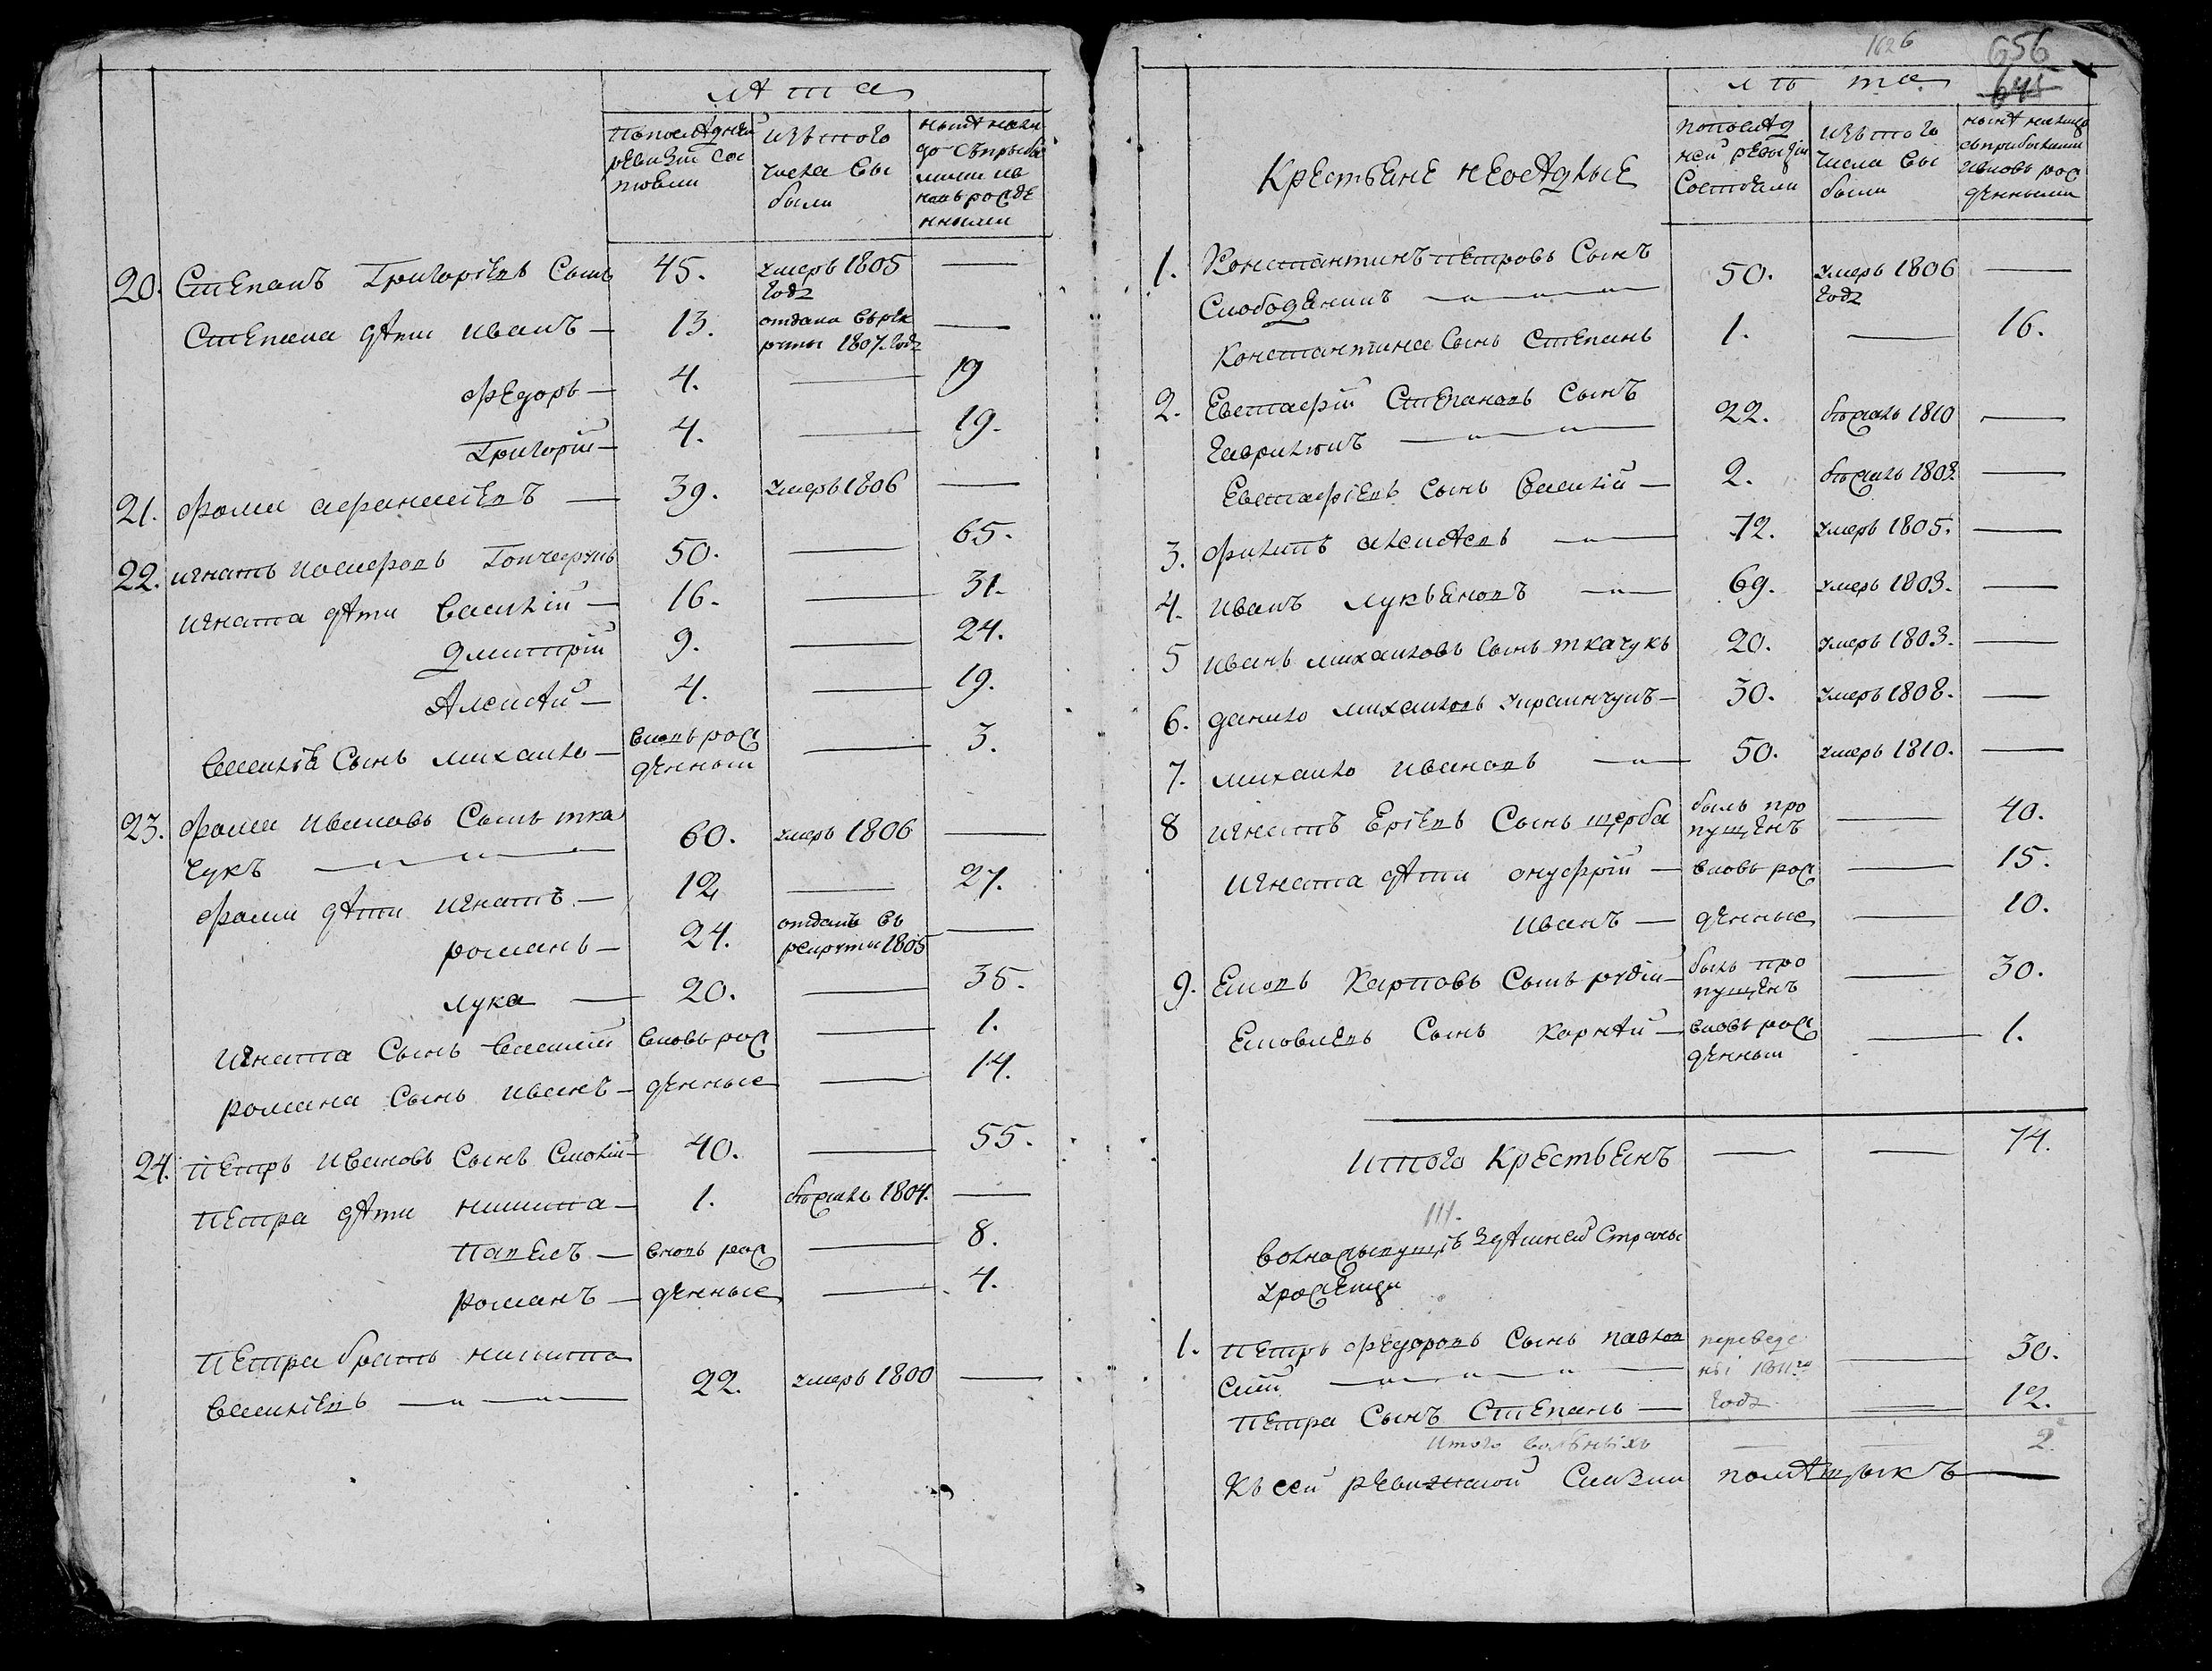 лѣта
по последней ревизіи состояли
изъ того числа выбыли
ныне на лицо съ прибылыми и вновь рожденными
20. Степанъ Григоріевъ Сынъ 45. умеръ 1805 года —
Степана дѣти иванъ — 13. отданъ въ рекруты 1807. года —
Федоръ — 4. — 19
Григорій — 4. — 19.
21. Фома афанасіевъ — 39. умеръ 1806 —
22. игнатъ иосифовъ Гончарукъ 50. — 65.
игната дѣти василій — 16. — 31.
дмитрій 9. — 24.
Алексѣй — 4. — 19.
василія Сынъ михайло — вновь рожденный — 3.
23. Фома ивановъ Сынъ тка
чукъ — 60. умеръ 1806 —
Фомы дѣти игнатъ — 12 — 27.
романъ — 24. отданъ въ рекруты 1805 —
лука — 20. — 35.
игната Сынъ василій вновь рож — 1.
романа Сынъ иванъ — денные — 14.
24. петръ ивановъ Сынъ Смолій — 40. — 55.
петра дѣти никита — 1. бѣжалъ 1804. —
павелъ — вновь рож — 8.
романъ — денные — 4.
петра братъ никита
василіевъ — 22. умеръ 1800 —
1626
656
лѣта
Крестьяне неосѣдлые
по послѣдней ревизіи Состояли
изъ того числа выбыли
нынѣ на лицо съ прибылыми и вновь рожденными
1. Константинъ петровъ Сынъ
Слободянинъ — 50. умеръ 1806 года —
Константина Сынъ Степанъ 1. — 16.
2. Евстафій Степановъ Сынъ
гаврилюкъ — 22. бѣжалъ 1810 —
Евстафіевъ Сынъ василій — 2. бѣжалъ 1808. —
3. Филипъ алексѣевъ — 72. умеръ 1805. —
4. иванъ лукьяновъ — 69. умеръ 1803. —
5 иванъ михайловъ Сынъ ткачукъ 20. умеръ 1803. —
6. данило михайловъ украинчукъ — 30. умеръ 1808. —
7. михайло ивановъ — 50. умеръ 1810. —
8 игнатъ Еріевъ Сынъ щерба былъ пропущенъ — 40.
игната дѣти онуфрій — вновь рож — 15.
иванъ — денные — 10.
9. Карповъ Сынъ рудій — былъ пропущенъ — 30.
Сынъ Корнѣй — вновь рожденный — 1.
итого Крестьянъ — — 74.
III.
здѣшней Страны
уроженцы
1. петръ Федоровъ Сынъ павлов
скій — переведены 1811го года — 30.
петра Сынъ Степанъ — — 12.
итого вольныхъ — — 2.
Къ сей ревизской Сказки помѣщикъ —